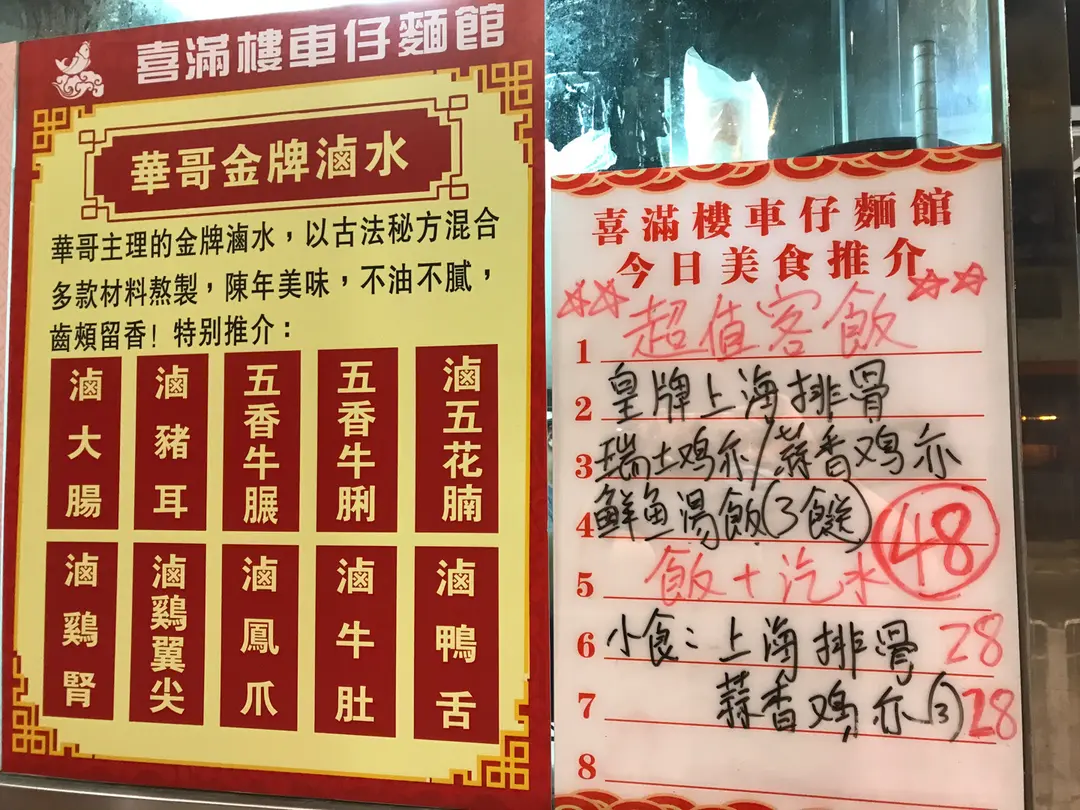 喜滿樓車仔麵館
華哥金牌滷水
華哥主理的金牌滷水，以古法秘方混合
多款材料熬製，陳年美味，不油不膩，
齒頰留香！特别推介：
滷大腸
滷豬耳
五香牛𦟌
五香牛脷
滷五花腩
滷鷄腎
滷鷄翼尖
滷鳳爪
滷牛肚
滷鴨舌
喜滿樓車仔麵館
今日美食推介
1 超值客飯
2 皇牌上海排骨
3 瑞士鸡亦/蒜香鸡亦
4 鮮魚湯飯(3餸)
5 飯+汽水 48
6 小食：上海排骨 28
7 蒜香鸡亦(3) 28
8